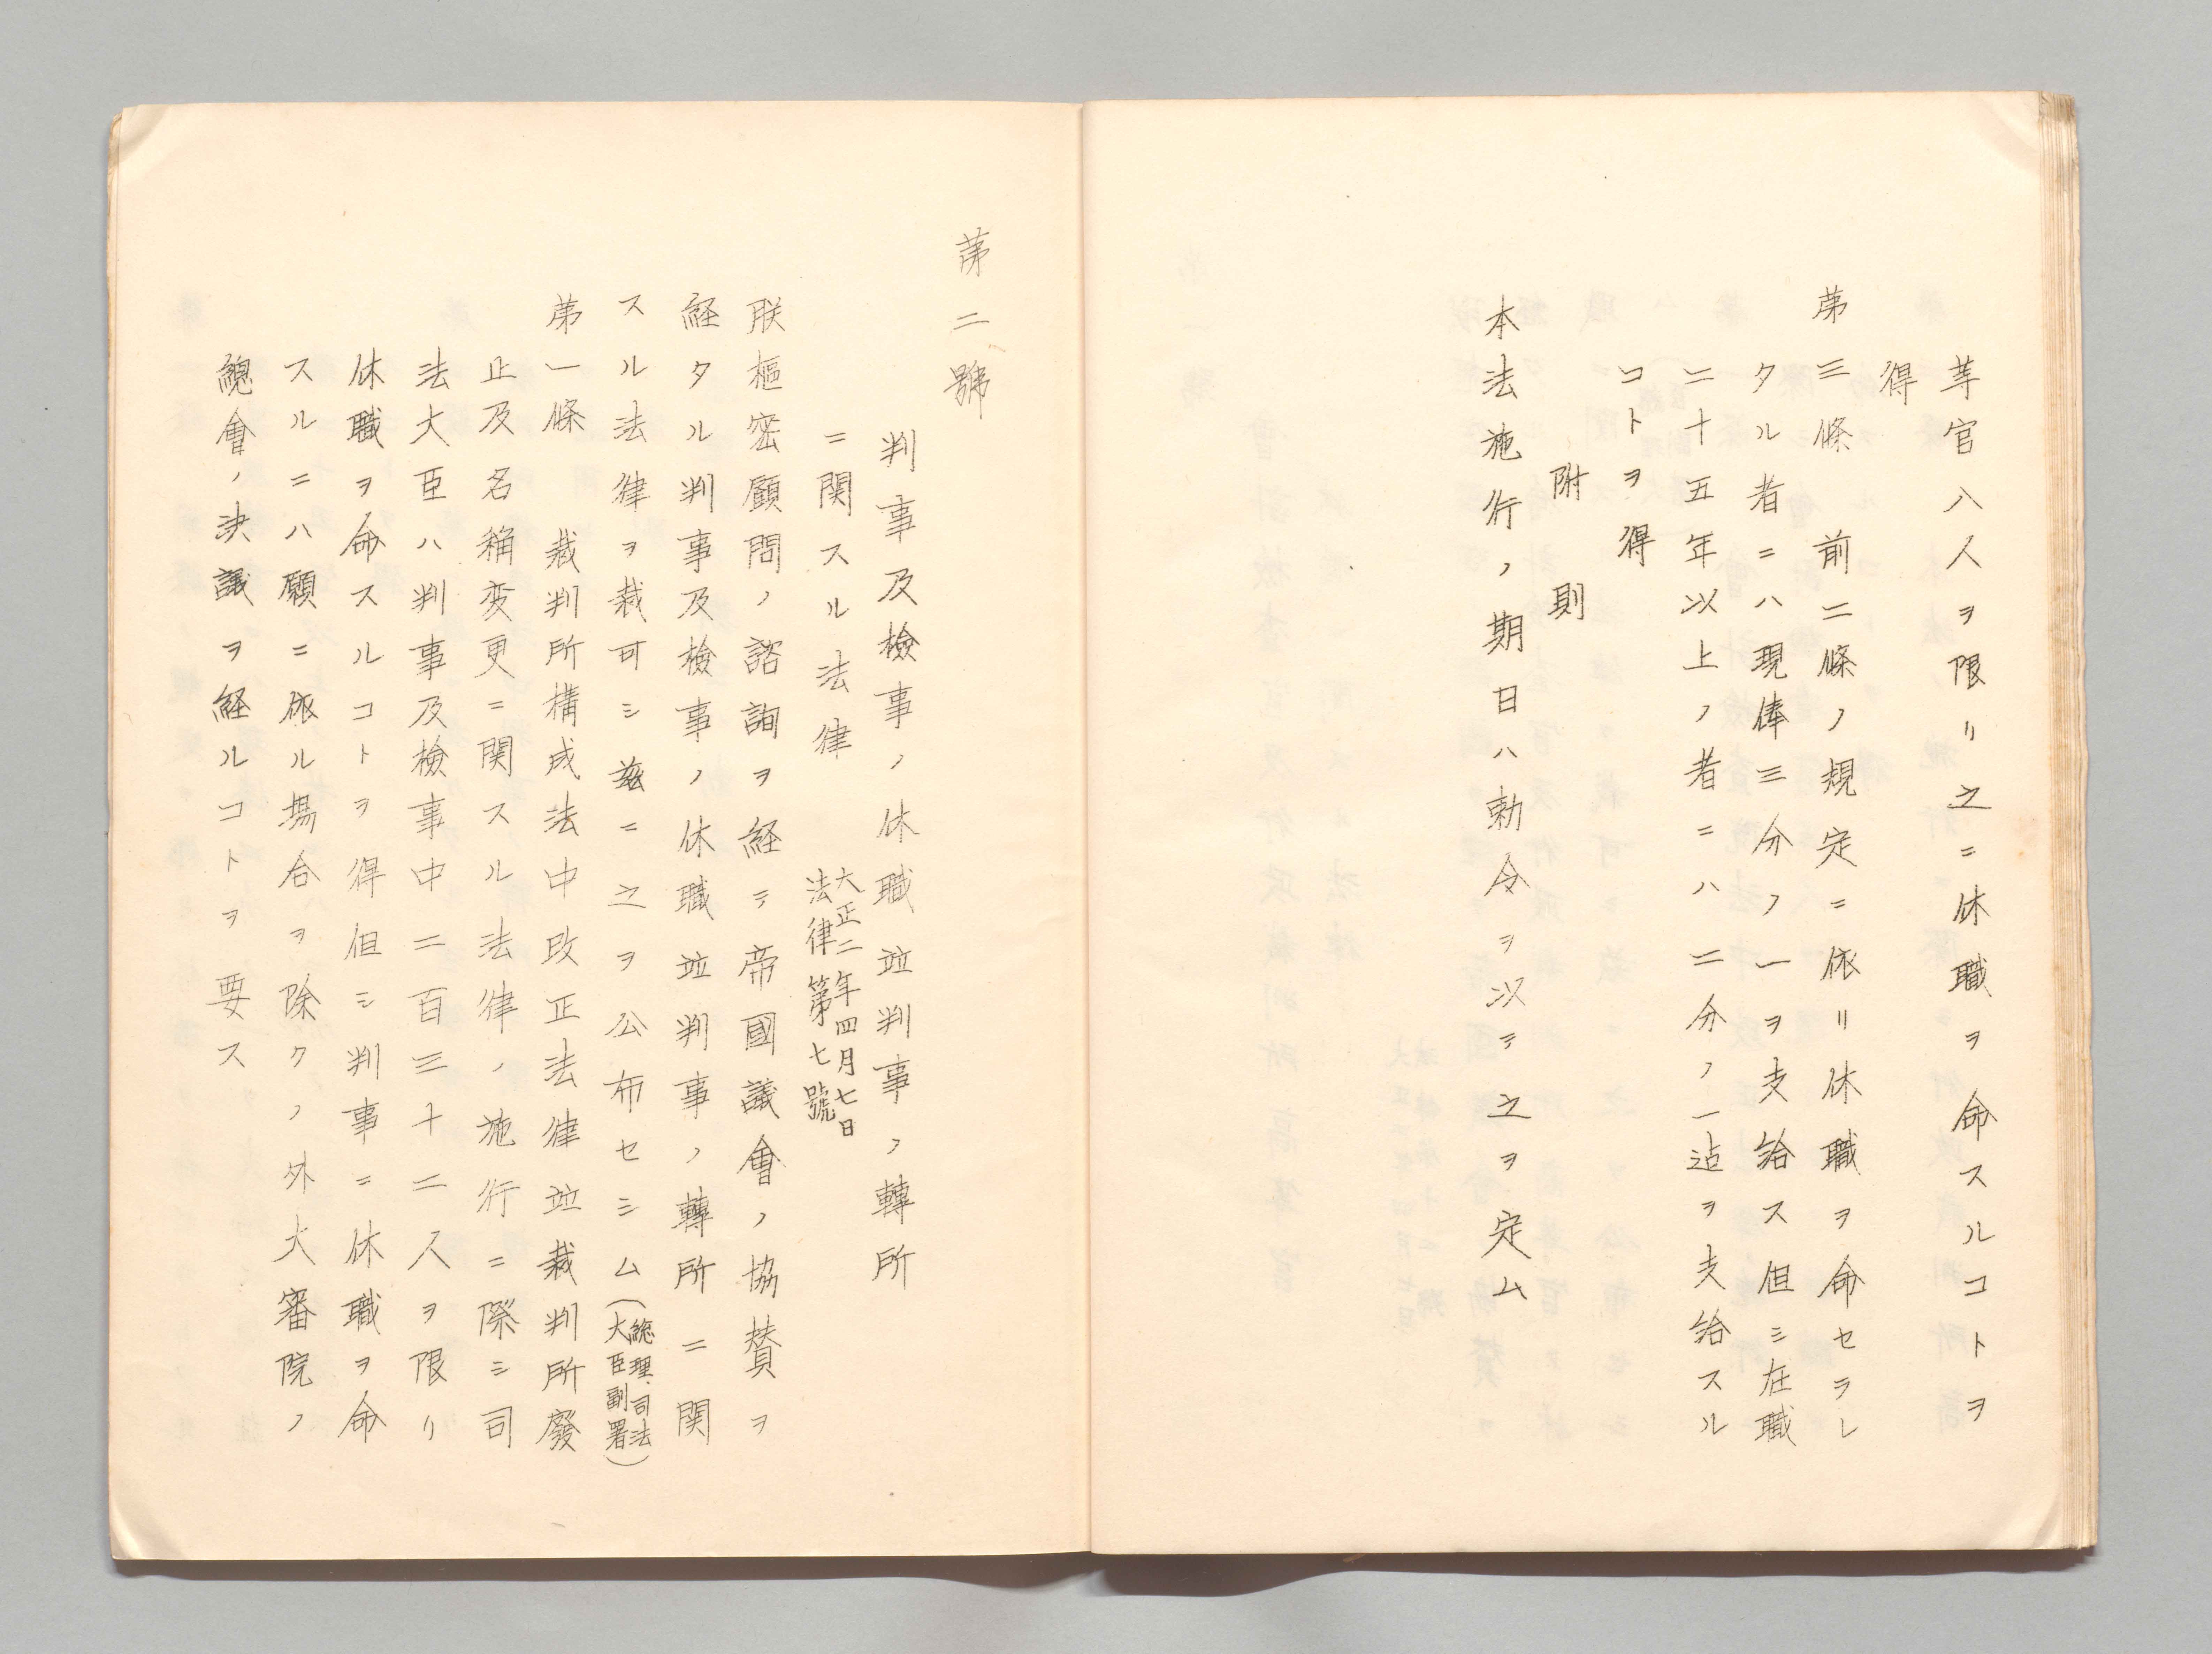 等官八人ヲ限リ之ニ休職ヲ命スルコトヲ
得
第三條　前二條ノ規定ニ依リ休職ヲ命セラレ
タル者ニハ現俸三分ノ一ヲ支給ス但シ在職
二十五年以上ノ者ニハ二分ノ一迠ヲ支給スル
コトヲ得
附則
本法施行ノ期日ハ勅令ヲ以テ之ヲ定ム
第二號
判事及檢事ノ休職竝判事ノ轉所
ニ関スル法律
大正二年四月七日
法律第七號
朕樞密顧問ノ諮詢ヲ経テ帝國議會ノ協賛ヲ
経タル判事及檢事ノ休職竝判事ノ轉所ニ関
スル法律ヲ裁可シ茲ニ之ヲ公布セシム（總理、司法大臣副署）
第一條　裁判所構成法中改正法律竝裁判所廢
止及名稱変更ニ関スル法律ノ施行ニ際シ司
法大臣ハ判事及檢事中二百三十二人ヲ限リ
休職ヲ命スルコトヲ得但シ判事ニ休職ヲ命
スルニハ願ニ依ル場合ヲ除クノ外大審院ノ
總會ノ決議ヲ経ルコトヲ要ス